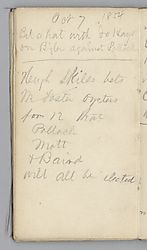 Oct 7, 1854
Bet a hat with
on Bigler against Pollock
Hugh Skiles bets
M Foster oysters
for 12 that
Pollock
Mott
& Baird
will all be elected